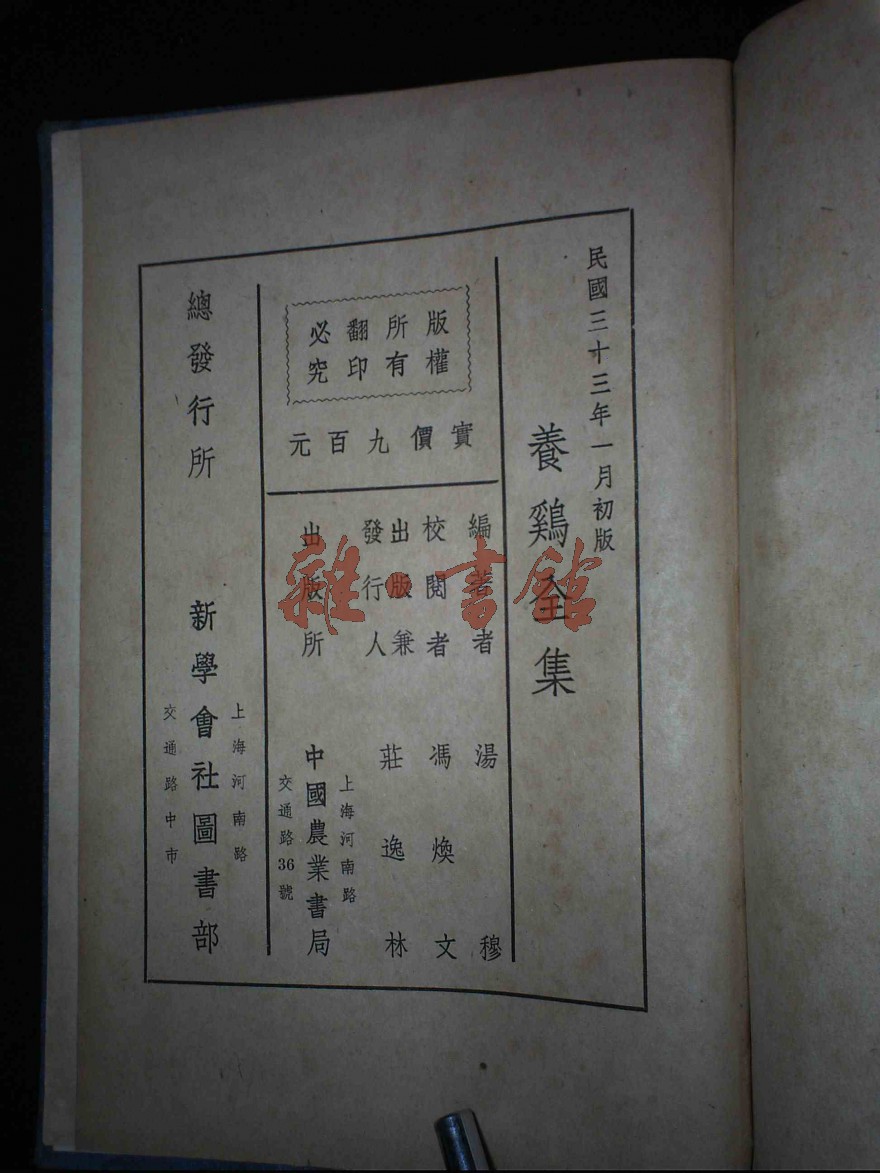 民國三十三年一月初版
養鷄全集
版權
所有
翻印
必究
實價九百元
編著者 湯穆
校閱者 馮煥文
出版兼
發行人 莊逸林
出版所 中國農業書局
上海河南路
交通路36號
總發行所 新學會社圖書部
上海河南路
交通路中市
雜·書館